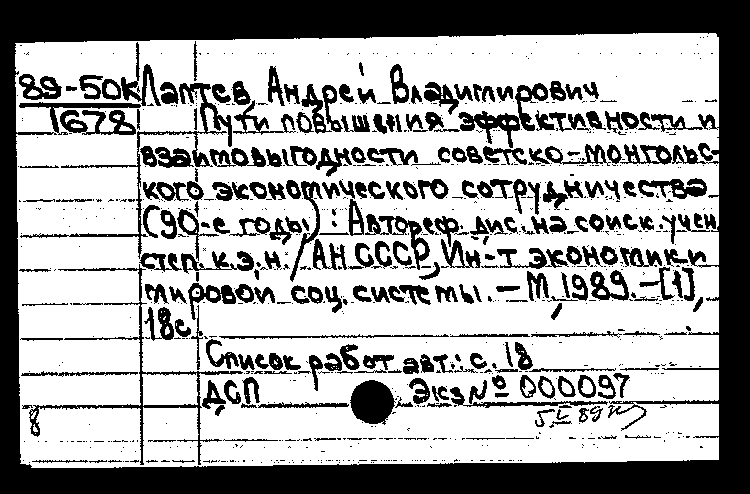 89-50К Лаптев, Андрей Владимирович
1678 Пути повышения эффективности и
взаимовыгодности советско-монгольс-
кого экономического сотрудничества
(90-е годы) : Автореф. дис. на соиск. учен.
степ. к.э.н. / АН СССР, Ин-т экономики
мировой соц. системы. — М., 1989. — [1],
18с.
Список работ авт.: с. 18
ДСП Экз № 000097
8